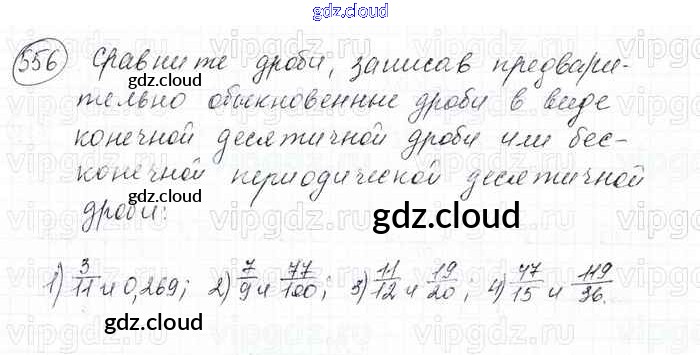 gdz.cloud
556 Сравните дроби, записав предвари-
тельно обыкновенные дроби в виде
конечной десятичной дроби или бес-
конечной периодической десятичной
дроби:
1) 3/11 и 0,269; 2) 7/9 и 77/100; 3) 11/12 и 19/20; 4) 47/15 и 119/36.
gdz.cloud
gdz.cloud
gdz.cloud
gdz.cloud
gdz.cloud
gdz.cloud
gdz.cloud
vipgdz.ru